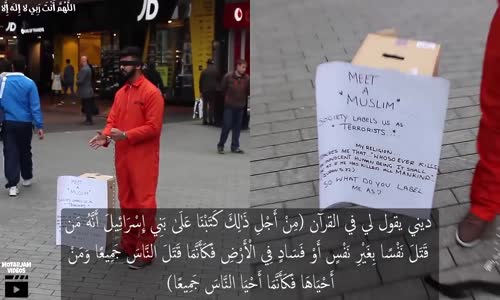 اللَّهُمَّ أَنْتَ رَبِّي لا إِلَهَ إِلا
JD
MEET
A
"MUSLIM"
SOCIETY LABELS US AS
"TERRORISTS"!
MY RELIGION
TEACHES ME THAT "WHOSO EVER KILLS
INNOCENT HUMAN BEING IT SHALL
BE AS IF HE HAS KILLED ALL MANKIND"
SO WHAT DO YOU LABEL
ME AS?
ديني يقول لي في القرآن (مِنْ أَجْلِ ذَلِكَ كَتَبْنَا عَلَىٰ بَنِي إِسْرَائِيلَ أَنَّهُ مَن
قَتَلَ نَفْسًا بِغَيْرِ نَفْسٍ أَوْ فَسَادٍ فِي الْأَرْضِ فَكَأَنَّمَا قَتَلَ النَّاسَ جَمِيعًا وَمَنْ
أَحْيَاهَا فَكَأَنَّمَا أَحْيَا النَّاسَ جَمِيعًا)
MOTARJAM
VIDEOS